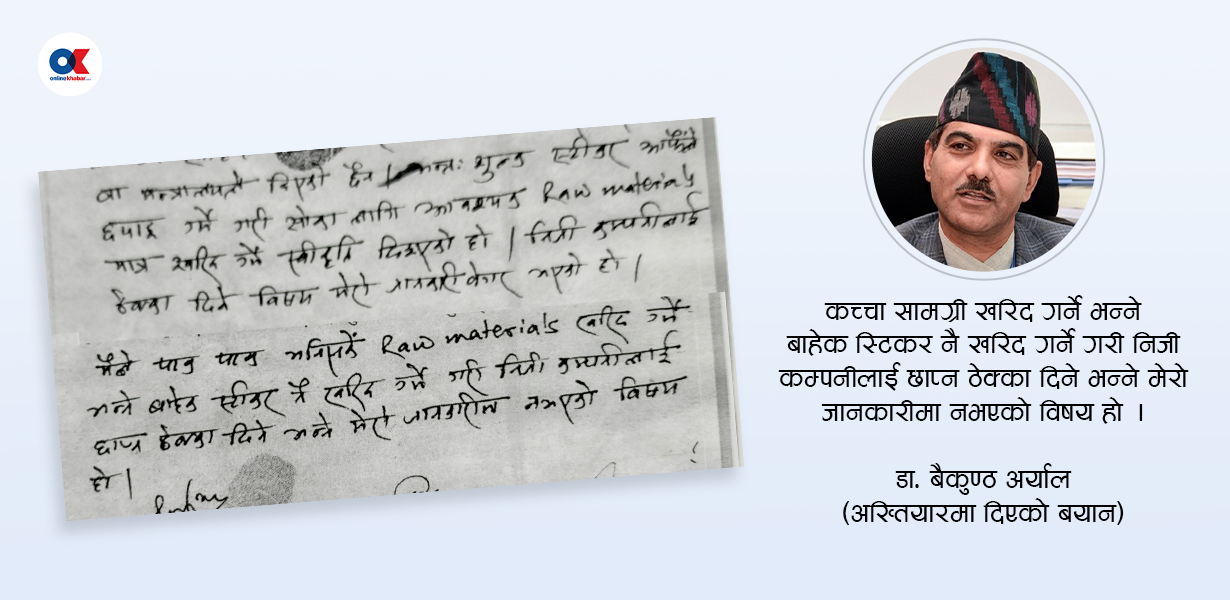 OK
onlinekhabar.com
वा मन्त्रालयले दिएको छैन । अन्तः शुल्क स्टीकर आफैले
छपाइ गर्ने गरी सोका लागि आवश्यक Raw materials
मात्र खरिद गर्ने स्वीकृति दिइएको हो । निजी कम्पनीलाई
ठेक्का दिने विषय मेरो जानकारी भएको हो ।
मैले थाहा पाए अनुसार Raw materials खरिद गर्ने
भन्ने बाहेक स्टीकर नै खरिद गर्ने गरी निजी कम्पनीलाई
छाप्न ठेक्का दिने भन्ने मेरो जानकारीमा नभएको विषय
हो ।
कच्चा सामग्री खरिद गर्ने भन्ने
बाहेक स्टिकर नै खरिद गर्ने गरी निजी
कम्पनीलाई छाप्न ठेक्का दिने भन्ने मेरो
जानकारीमा नभएको विषय हो ।
डा. बैकुण्ठ अर्याल
(अख्तियारमा दिएको बयान)